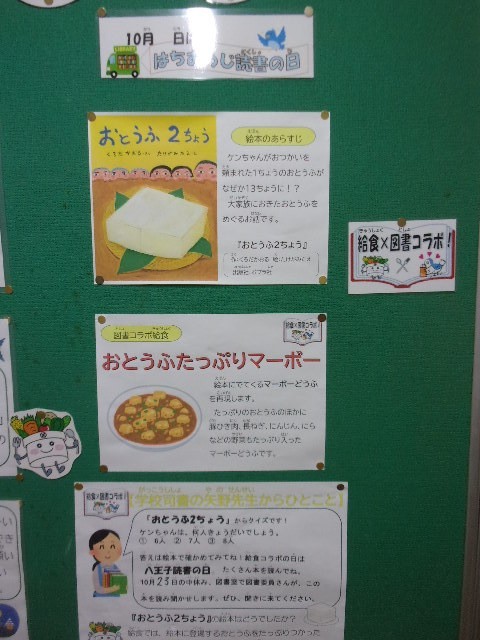 10月 日は
はちおうじ読書の日
おとうふ2ちょう
絵本のあらすじ
ケンちゃんがおつかいを
頼まれた1ちょうのおとうふが
なぜか13ちょうに!?
大家族におきたおとうふを
めぐるお話です。
『おとうふ2ちょう』
給食×図書コラボ!
図書コラボ給食
給食×図書コラボ!
おとうふたっぷりマーボー
絵本にでてくるマーボーどうふ
を再現します。
たっぷりのおとうふのほかに
豚ひき肉、長ねぎ、にんじん、にら
などの野菜もたっぷり入った
マーボーどうふです。
給食×図書コラボ!
【学校司書の矢野先生からひとこと】
「おとうふ2ちょう」からクイズです!
ケンちゃんは、何人きょうだいでしょう。
① 6人 ② 7人 ③ 8人
答えは絵本で確かめてみてね!給食コラボの日は
八王子読書の日 たくさん本を読んでね。
10月25日の中休み、図書室で図書委員さんが、この
本を読み聞かせします。ぜひ、聞きに来てください。
『おとうふ2ちょう』の絵本はどうでしたか?
給食では、絵本に登場するおとうふたっぷりつかった